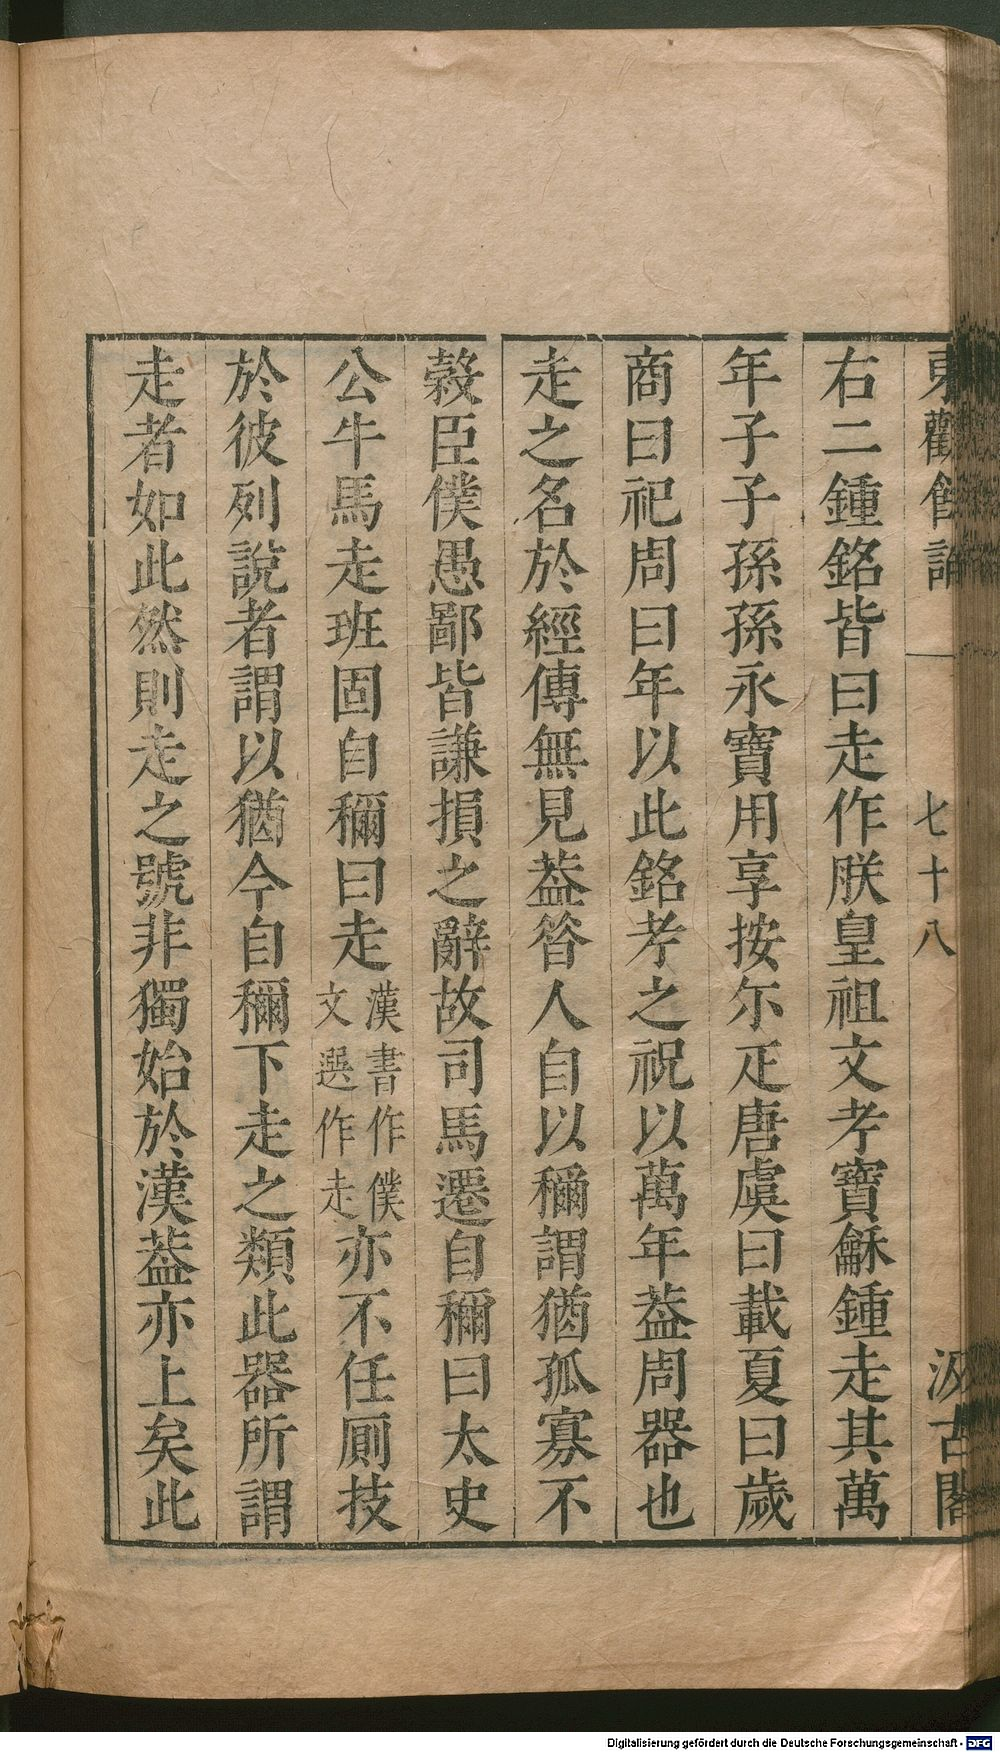 東觀餘論
七十八
汲古閣
右二鍾銘皆曰走作朕皇祖文考寶龢鍾走其萬
年子子孫孫永寶用享按尓疋唐虞曰載夏曰歲
商曰祀周曰年以此銘考之祝以萬年葢周器也
走之名於經傳無見葢昝人自以稱謂猶孤寡不
穀臣僕愚鄙皆謙損之辭故司馬遷自稱曰太史
公牛馬走班固自稱曰走漢書作僕文選作走亦不任厠技
於彼列說者謂以猶今自稱下走之類此器所謂
走者如此然則走之號非獨始於漢葢亦上矣此
Digitalisierung gefördert durch die Deutsche Forschungsgemeinschaft - DFG